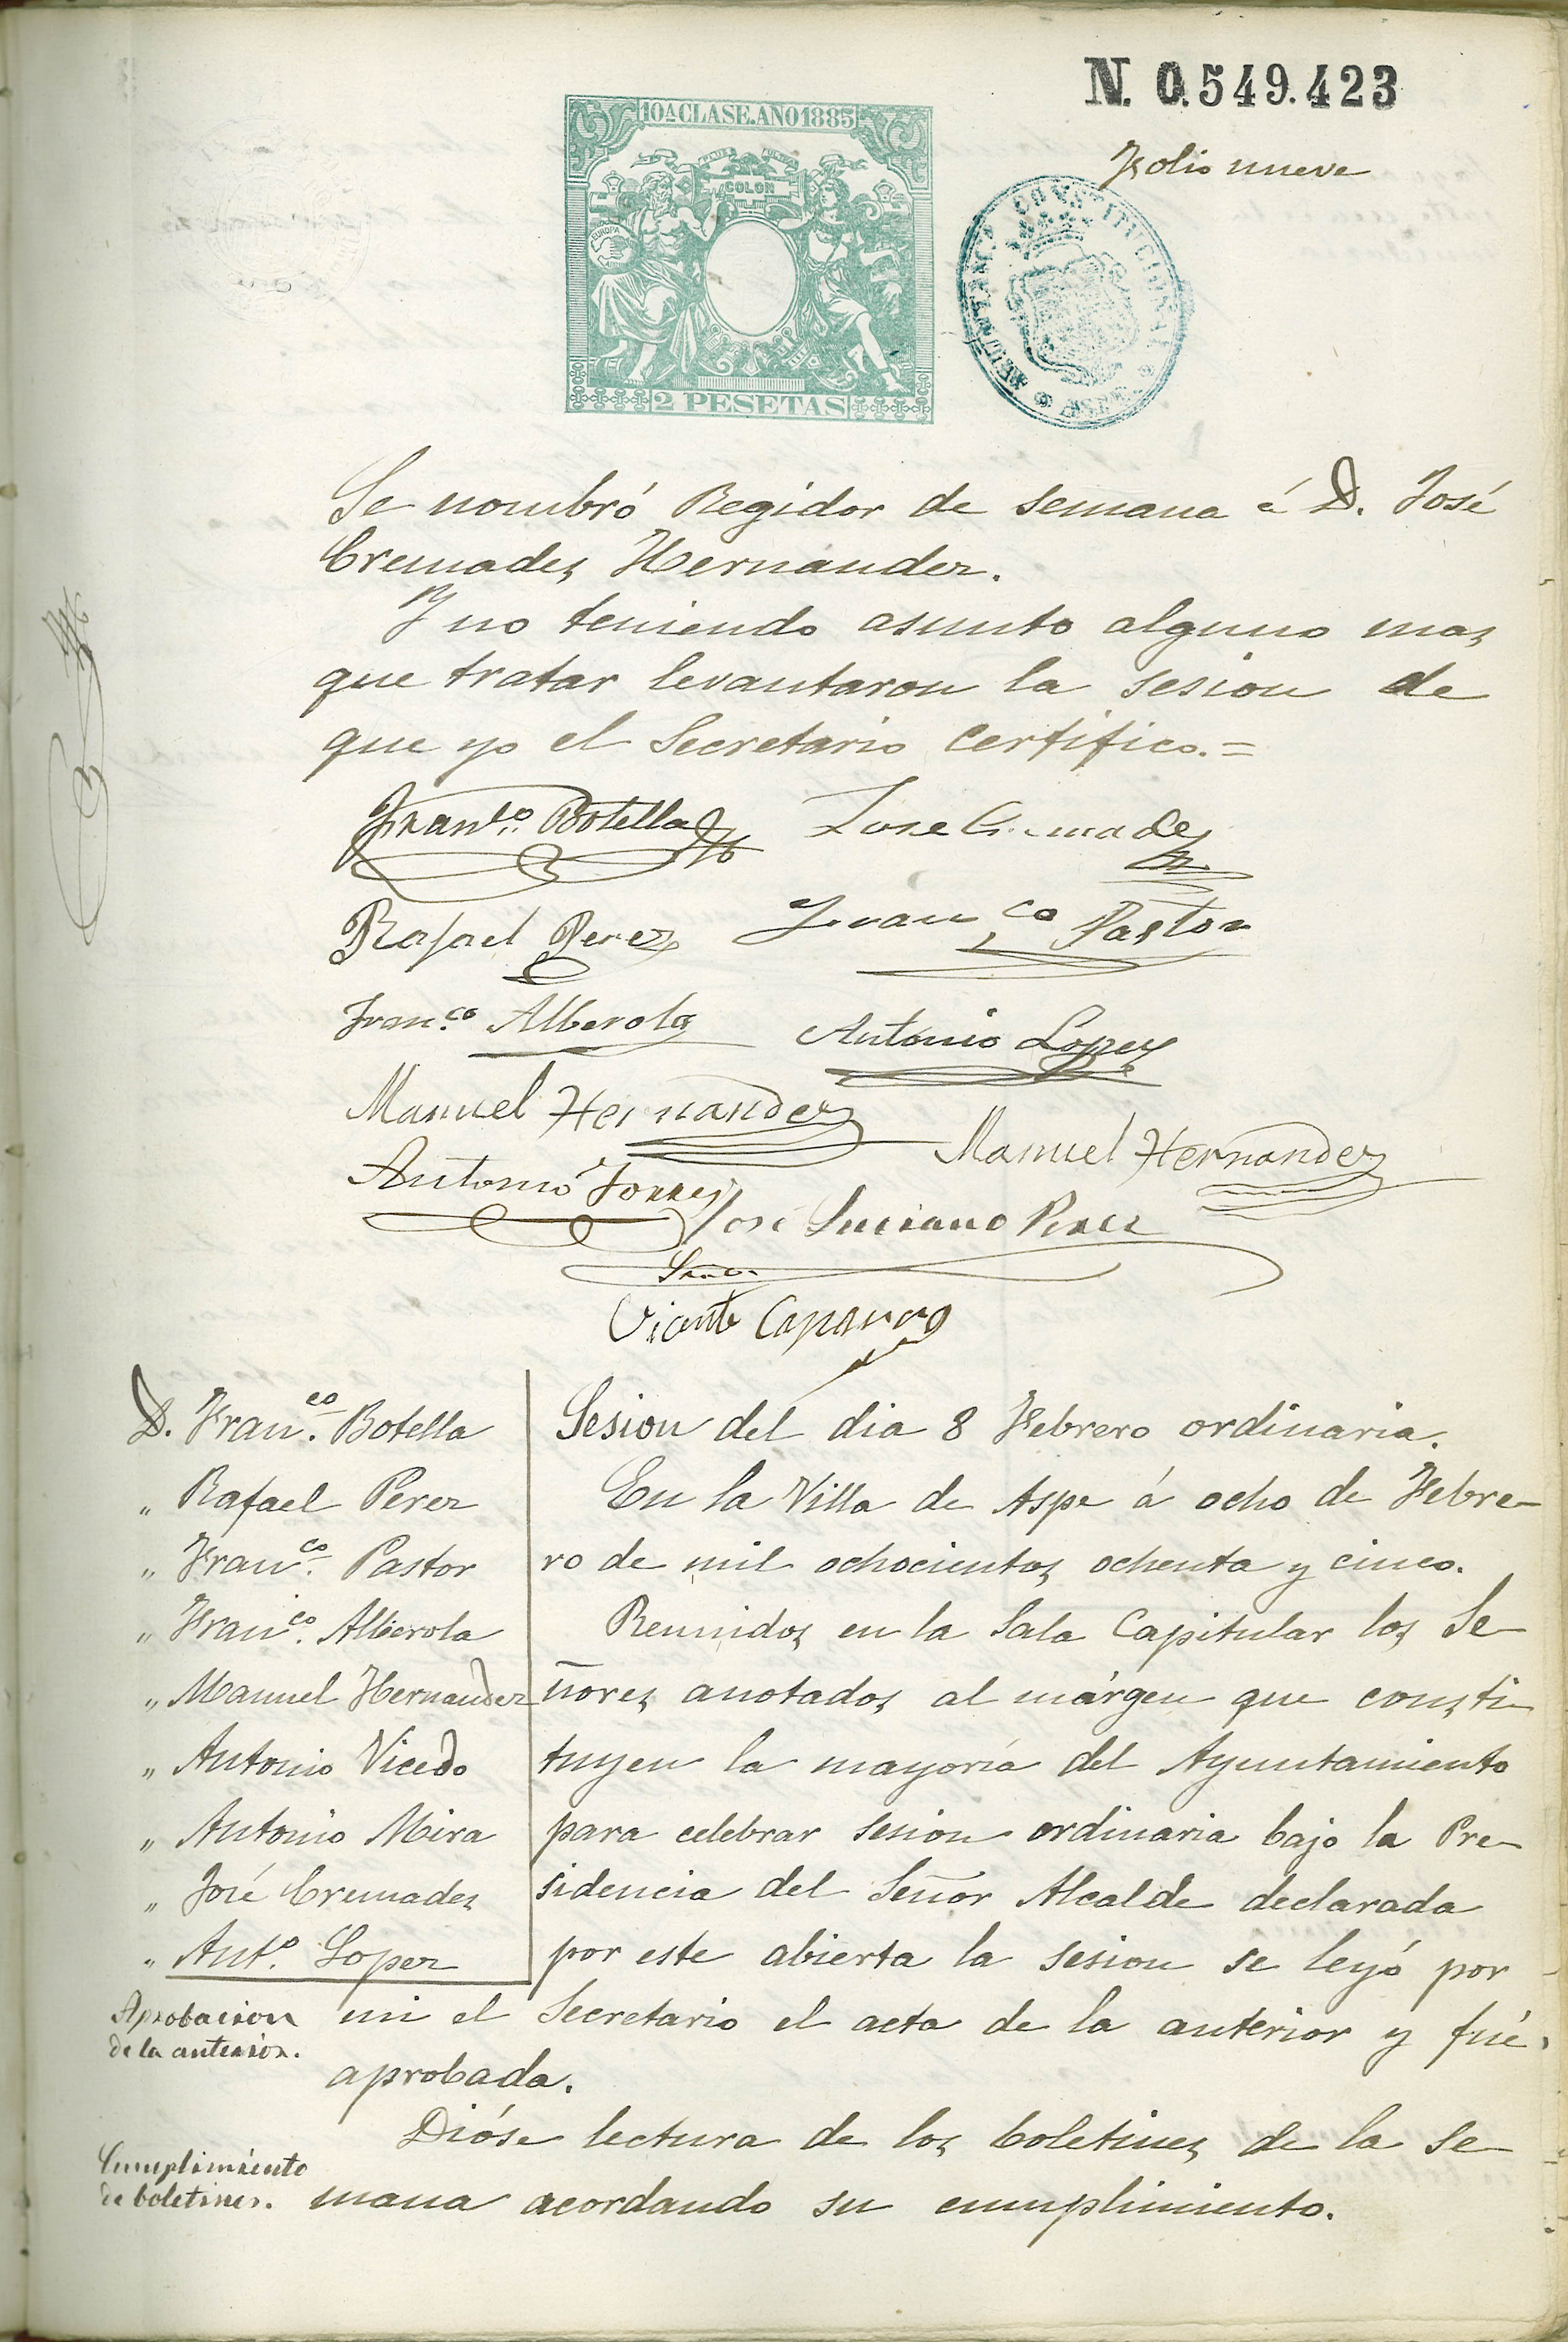 N. 0.549.423
10ª CLASE. AÑO 1885
PLUS ULTRA
COLON
EUROPA
2 PESETAS
Folio nueve
AYUNTAMIENTO CONSTITUCIONAL
Se nombró Regidor de semana á D. José
Cremades Hernandez.
Y no teniendo asunto alguno mas
que tratar levantaron la sesion de
que yo el Secretario certifico.=
Fran.co Botella
Jose Cremades
Rafael Perez
Franco Pastor
Fran.co Alberola
Antonio Lopez
Manuel Hernandez
Manuel Hernandez
Antonio Torres
José Luciano Perez
Vicente Caparros
D. Fran.co Botella
" Rafael Perez
" Fran.co Pastor
" Fran.co Alberola
" Manuel Hernandez
" Antonio Vicedo
" Antonio Mira
" José Cremades
" Ant.o Lopez
Sesion del dia 8 Febrero ordinaria.
En la Villa de Aspe á ocho de Febre-
ro de mil ochocientos ochenta y cinco.
Reunidos en la Sala Capitular los Se-
ñores anotados al márgen que consti-
tuyen la mayoría del Ayuntamiento
para celebrar sesion ordinaria bajo la Pre-
sidencia del Señor Alcalde declarada
por este abierta la sesion se leyó por
Aprobacion
de la anterior.
mi el Secretario el acta de la anterior y fué
aprobada.
Cumplimiento
de boletines.
Dióse lectura de los boletines de la se-
mana acordando su cumplimiento.